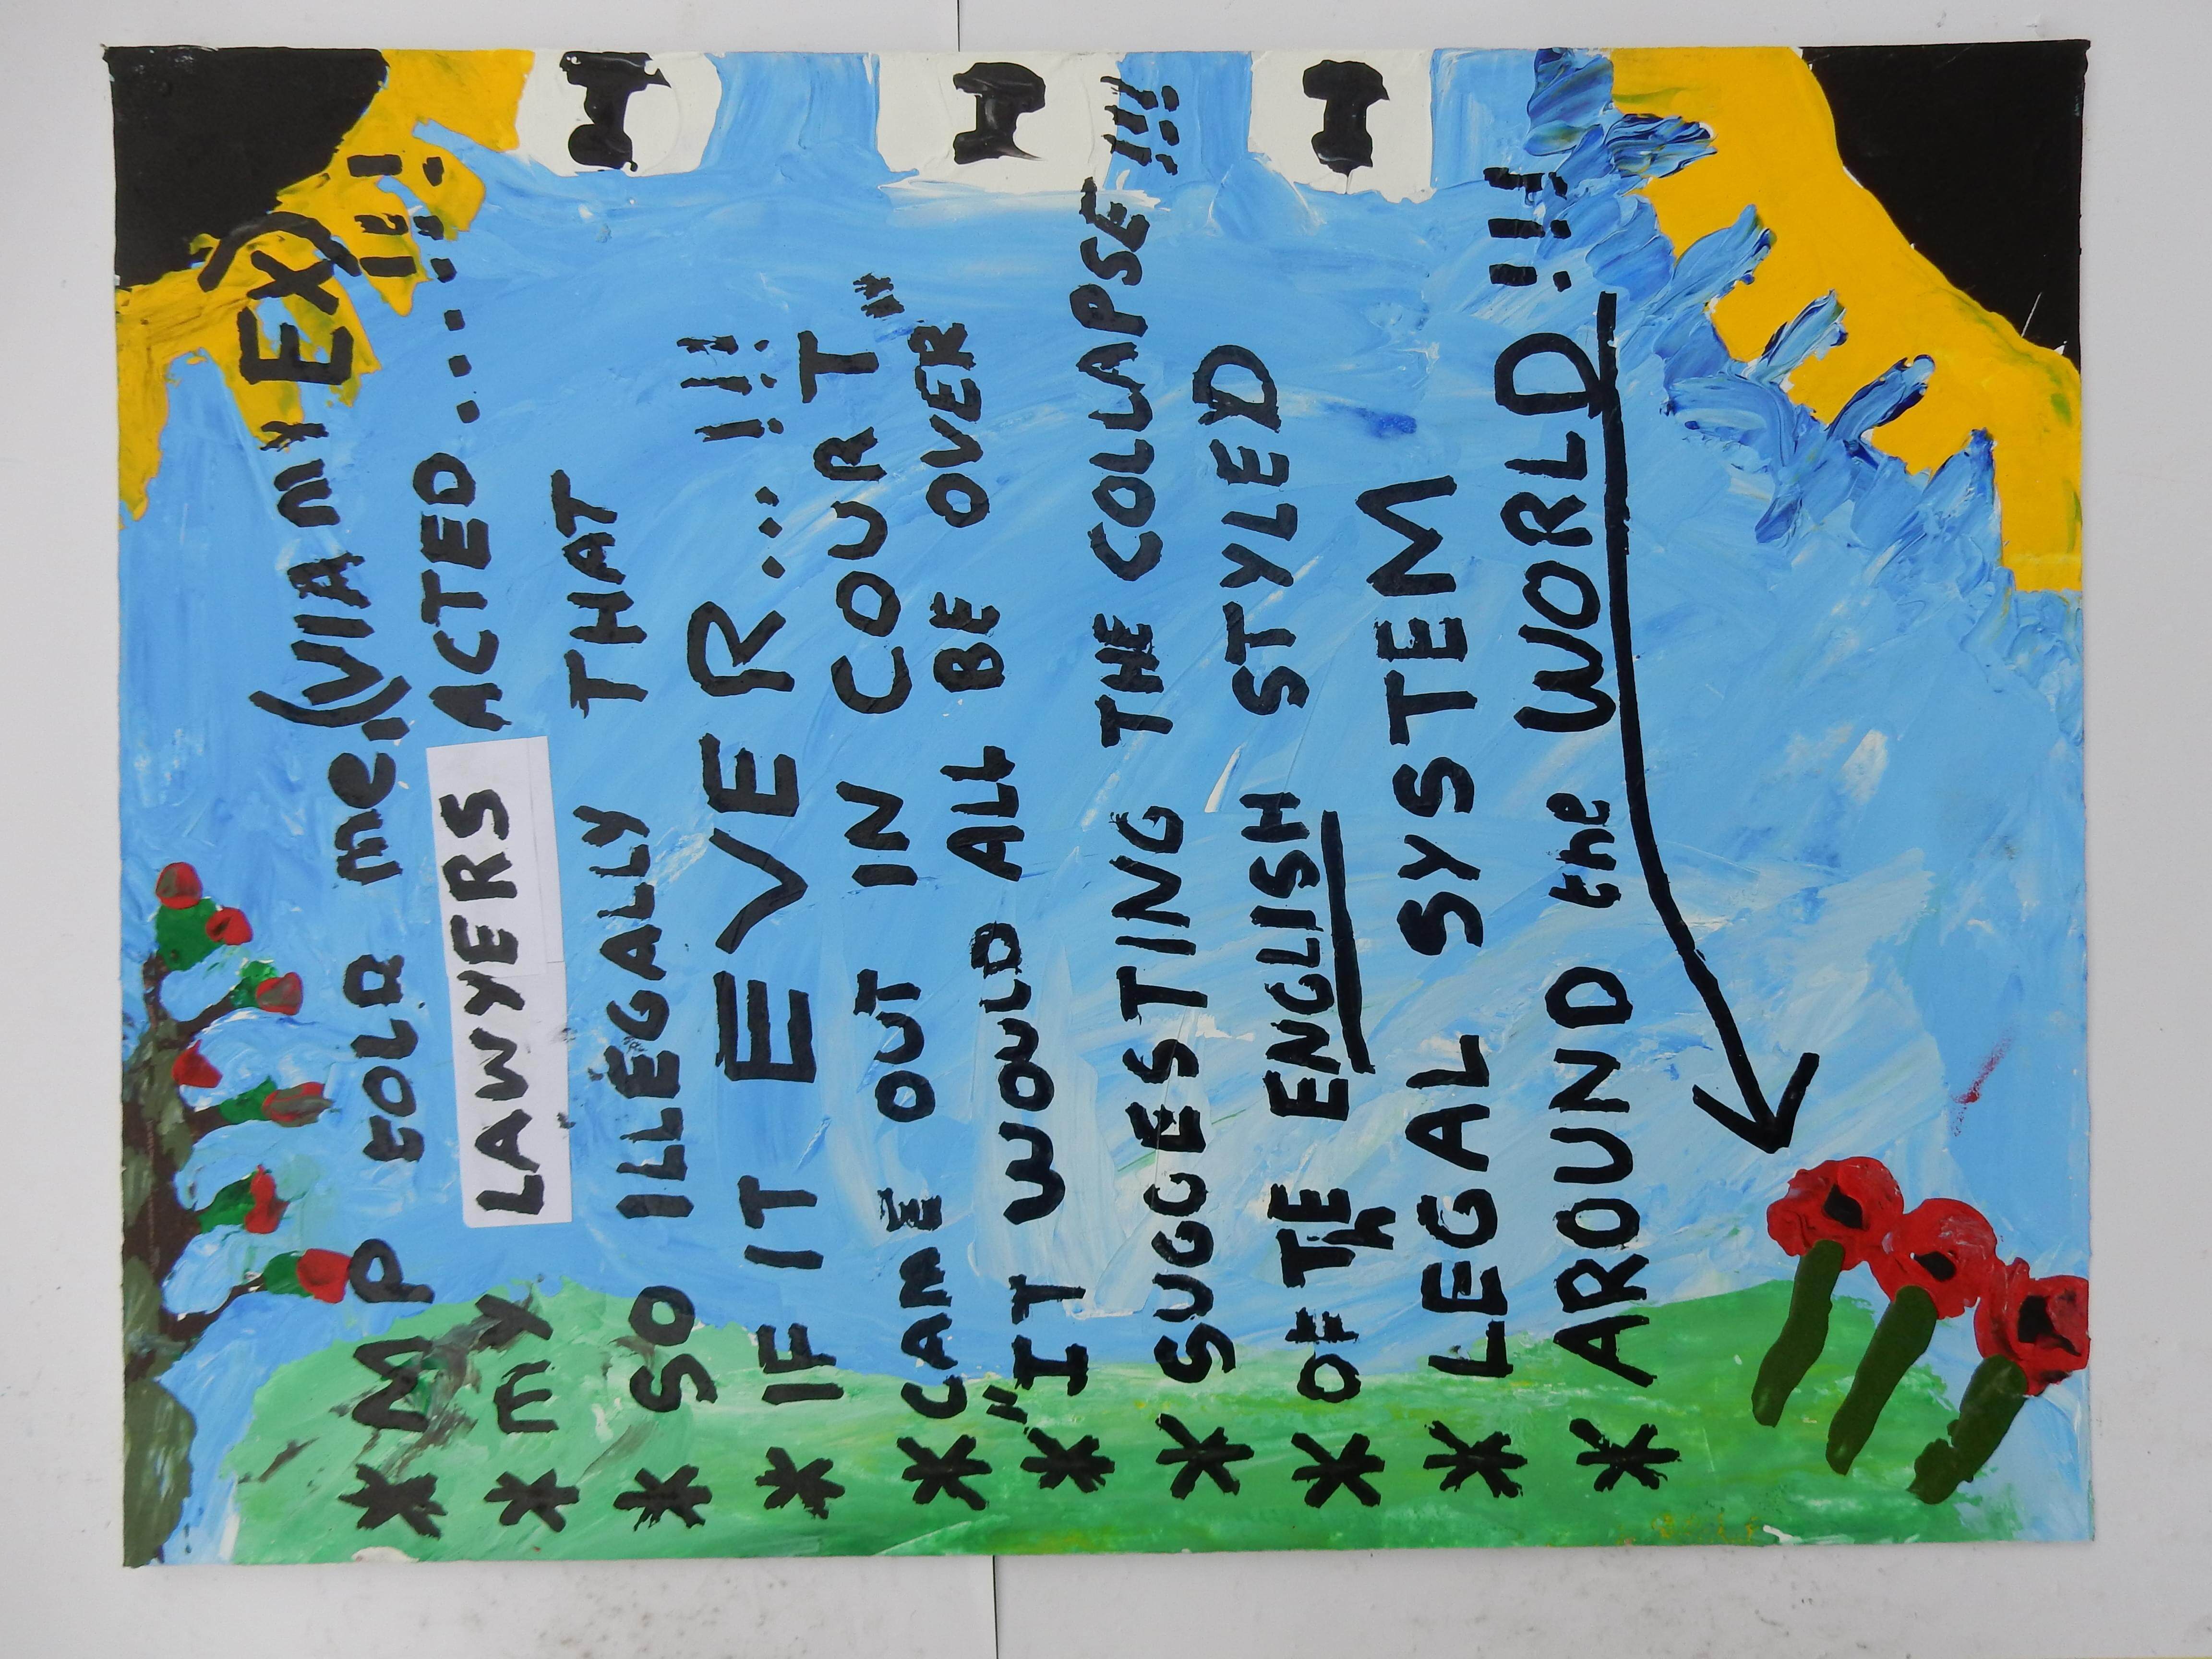 * MP told me, (VIA my EX) !!!
* my LAWYERS ACTED.......
* SO ILLEGALLY THAT
* IF IT EVER...!!!
* CAME OUT IN COURT"
* "IT WOULD ALL BE OVER"
* SUGGESTING THE COLLAPSE!!!
* OF THE ENGLISH STYLED
* LEGAL SYSTEM
* AROUND the WORLD!!!